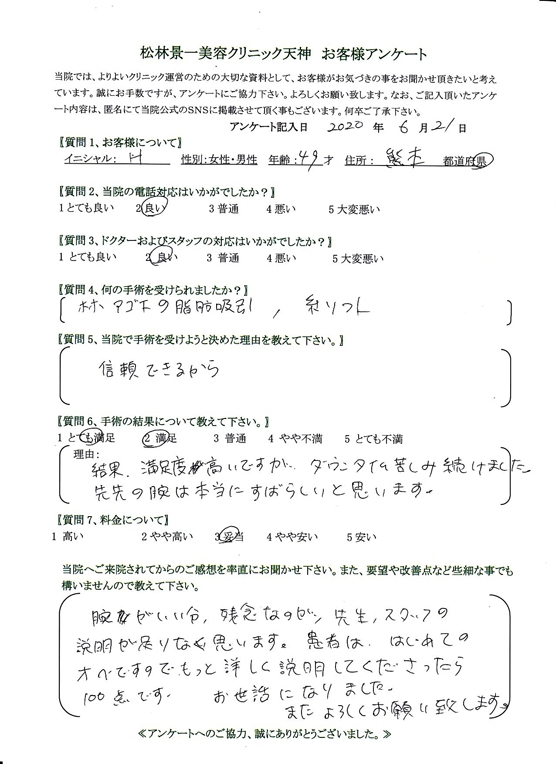 松林景一美容クリニック天神 お客様アンケート
当院では、よりよいクリニック運営のための大切な資料として、お客様がお気づきの事をお聞かせ頂きたいと考え
ています。誠にお手数ですが、アンケートにご協力下さい。よろしくお願い致します。なお、ご記入頂いたアンケ
ート内容は、匿名にて当院公式のSNSに掲載させて頂く事もございます。何卒ご了承下さい。
アンケート記入日 2020 年 6 月 21 日
〖質問 1、お客様について〗
イニシャル: H 性別:女性・男性 年齢:49 才 住所: 熊本 都道府県
〖質問 2、当院の電話対応はいかがでしたか?〗
1 とても良い 2 良い 3 普通 4 悪い 5 大変悪い
〖質問 3、ドクターおよびスタッフの対応はいかがでしたか?〗
1 とても良い 2 良い 3 普通 4 悪い 5 大変悪い
〖質問 4、何の手術を受けられましたか?〗
ホホ アゴ下の脂肪吸引 , 糸リフト
〖質問 5、当院で手術を受けようと決めた理由を教えて下さい。〗
信頼できるから
〖質問 6、手術の結果について教えて下さい。〗
1 とても満足 2 満足 3 普通 4 やや不満 5 とても不満
理由:
結果、満足度高いですが、ダウンタイム苦しみ続けました。
先先の腕は本当にすばらしいと思います。
〖質問 7、料金について〗
1 高い 2 やや高い 3 妥当 4 やや安い 5 安い
当院へご来院されてからのご感想を率直にお聞かせ下さい。また、要望や改善点など些細な事でも
構いませんので教えて下さい。
腕がいい分、残念なのが、先生、スタッフの
説明が足りなく思います。患者は、はじめての
オペですのでもっと詳しく説明してくださったら
100点です。 お世話になりました。
またよろしくお願い致します。
≪アンケートへのご協力、誠にありがとうございました。≫